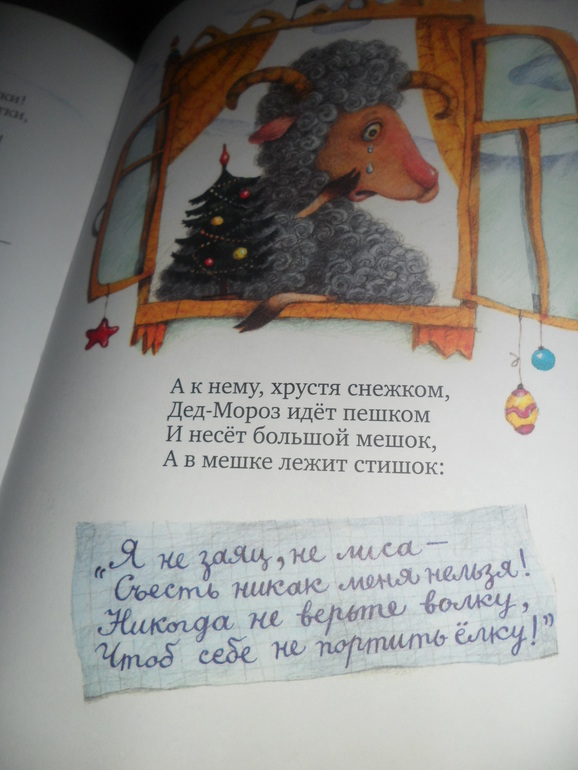 ки!
тки,
А к нему, хрустя снежком,
Дед-Мороз идёт пешком
И несёт большой мешок,
А в мешке лежит стишок:
„Я не заяц, не лиса —
Съесть никак меня нельзя!
Никогда не верьте волку,
Чтоб себе не портить ёлку!”